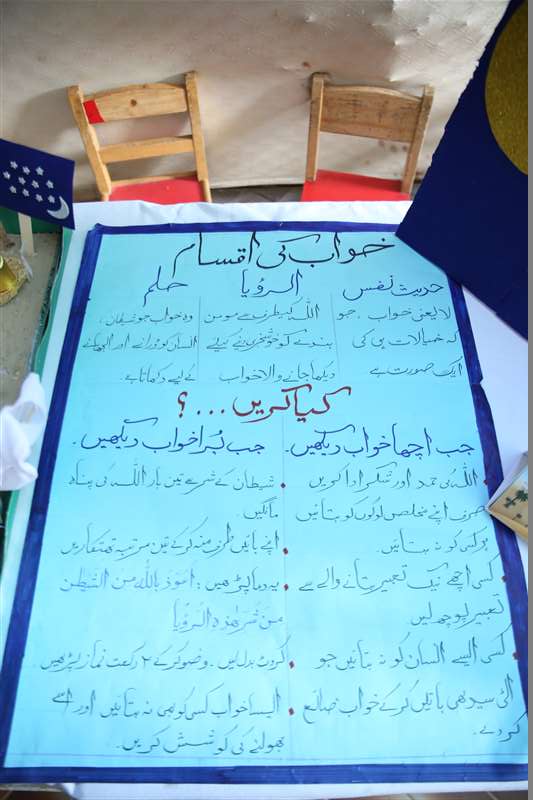 خواب کی اقسام
حدیث نفس
لایعنی خواب، جو
کہ خیالات ہی کی
ایک صورت ہے
الرؤیا
اللہ کیطرف سے مومن
بندے کو خوشخبری دینے کیلئے
دیکھا جانے والا خواب
حلم
وہ خواب جو شیطان،
انسان کو ڈرانے اور الجھانے
کے لیے دکھاتا ہے۔
کیا کریں...؟
جب اچھا خواب دیکھیں۔
اللہ کی حمد اور شکر ادا کریں
صرف اپنے مخلص لوگوں کو بتائیں
ہر کسی کو نہ بتائیں۔
کسی اچھے نیک تعبیر بتانے والے سے
تعبیر پوچھ لیں
کسی ایسے انسان کو نہ بتائیں جو
الٹی سیدھی باتیں کر کے خواب ضائع
کر دے۔
جب بُرا خواب دیکھیں۔
شیطان کے شر سے تین بار اللہ کی پناہ
مانگیں۔
اپنے بائیں طرف منہ کر کے تین مرتبہ تھتکاریں
یہ دعا پڑھیں: اعوذ باللہ من الشیطن
من شر ھذہ الرؤیا
کروٹ بدل لیں۔ وضو کر کے ۲ رکعت نماز پڑھیں
ایسا خواب کسی کو بھی نہ بتائیں اور اسے
بھولنے کی کوشش کریں۔